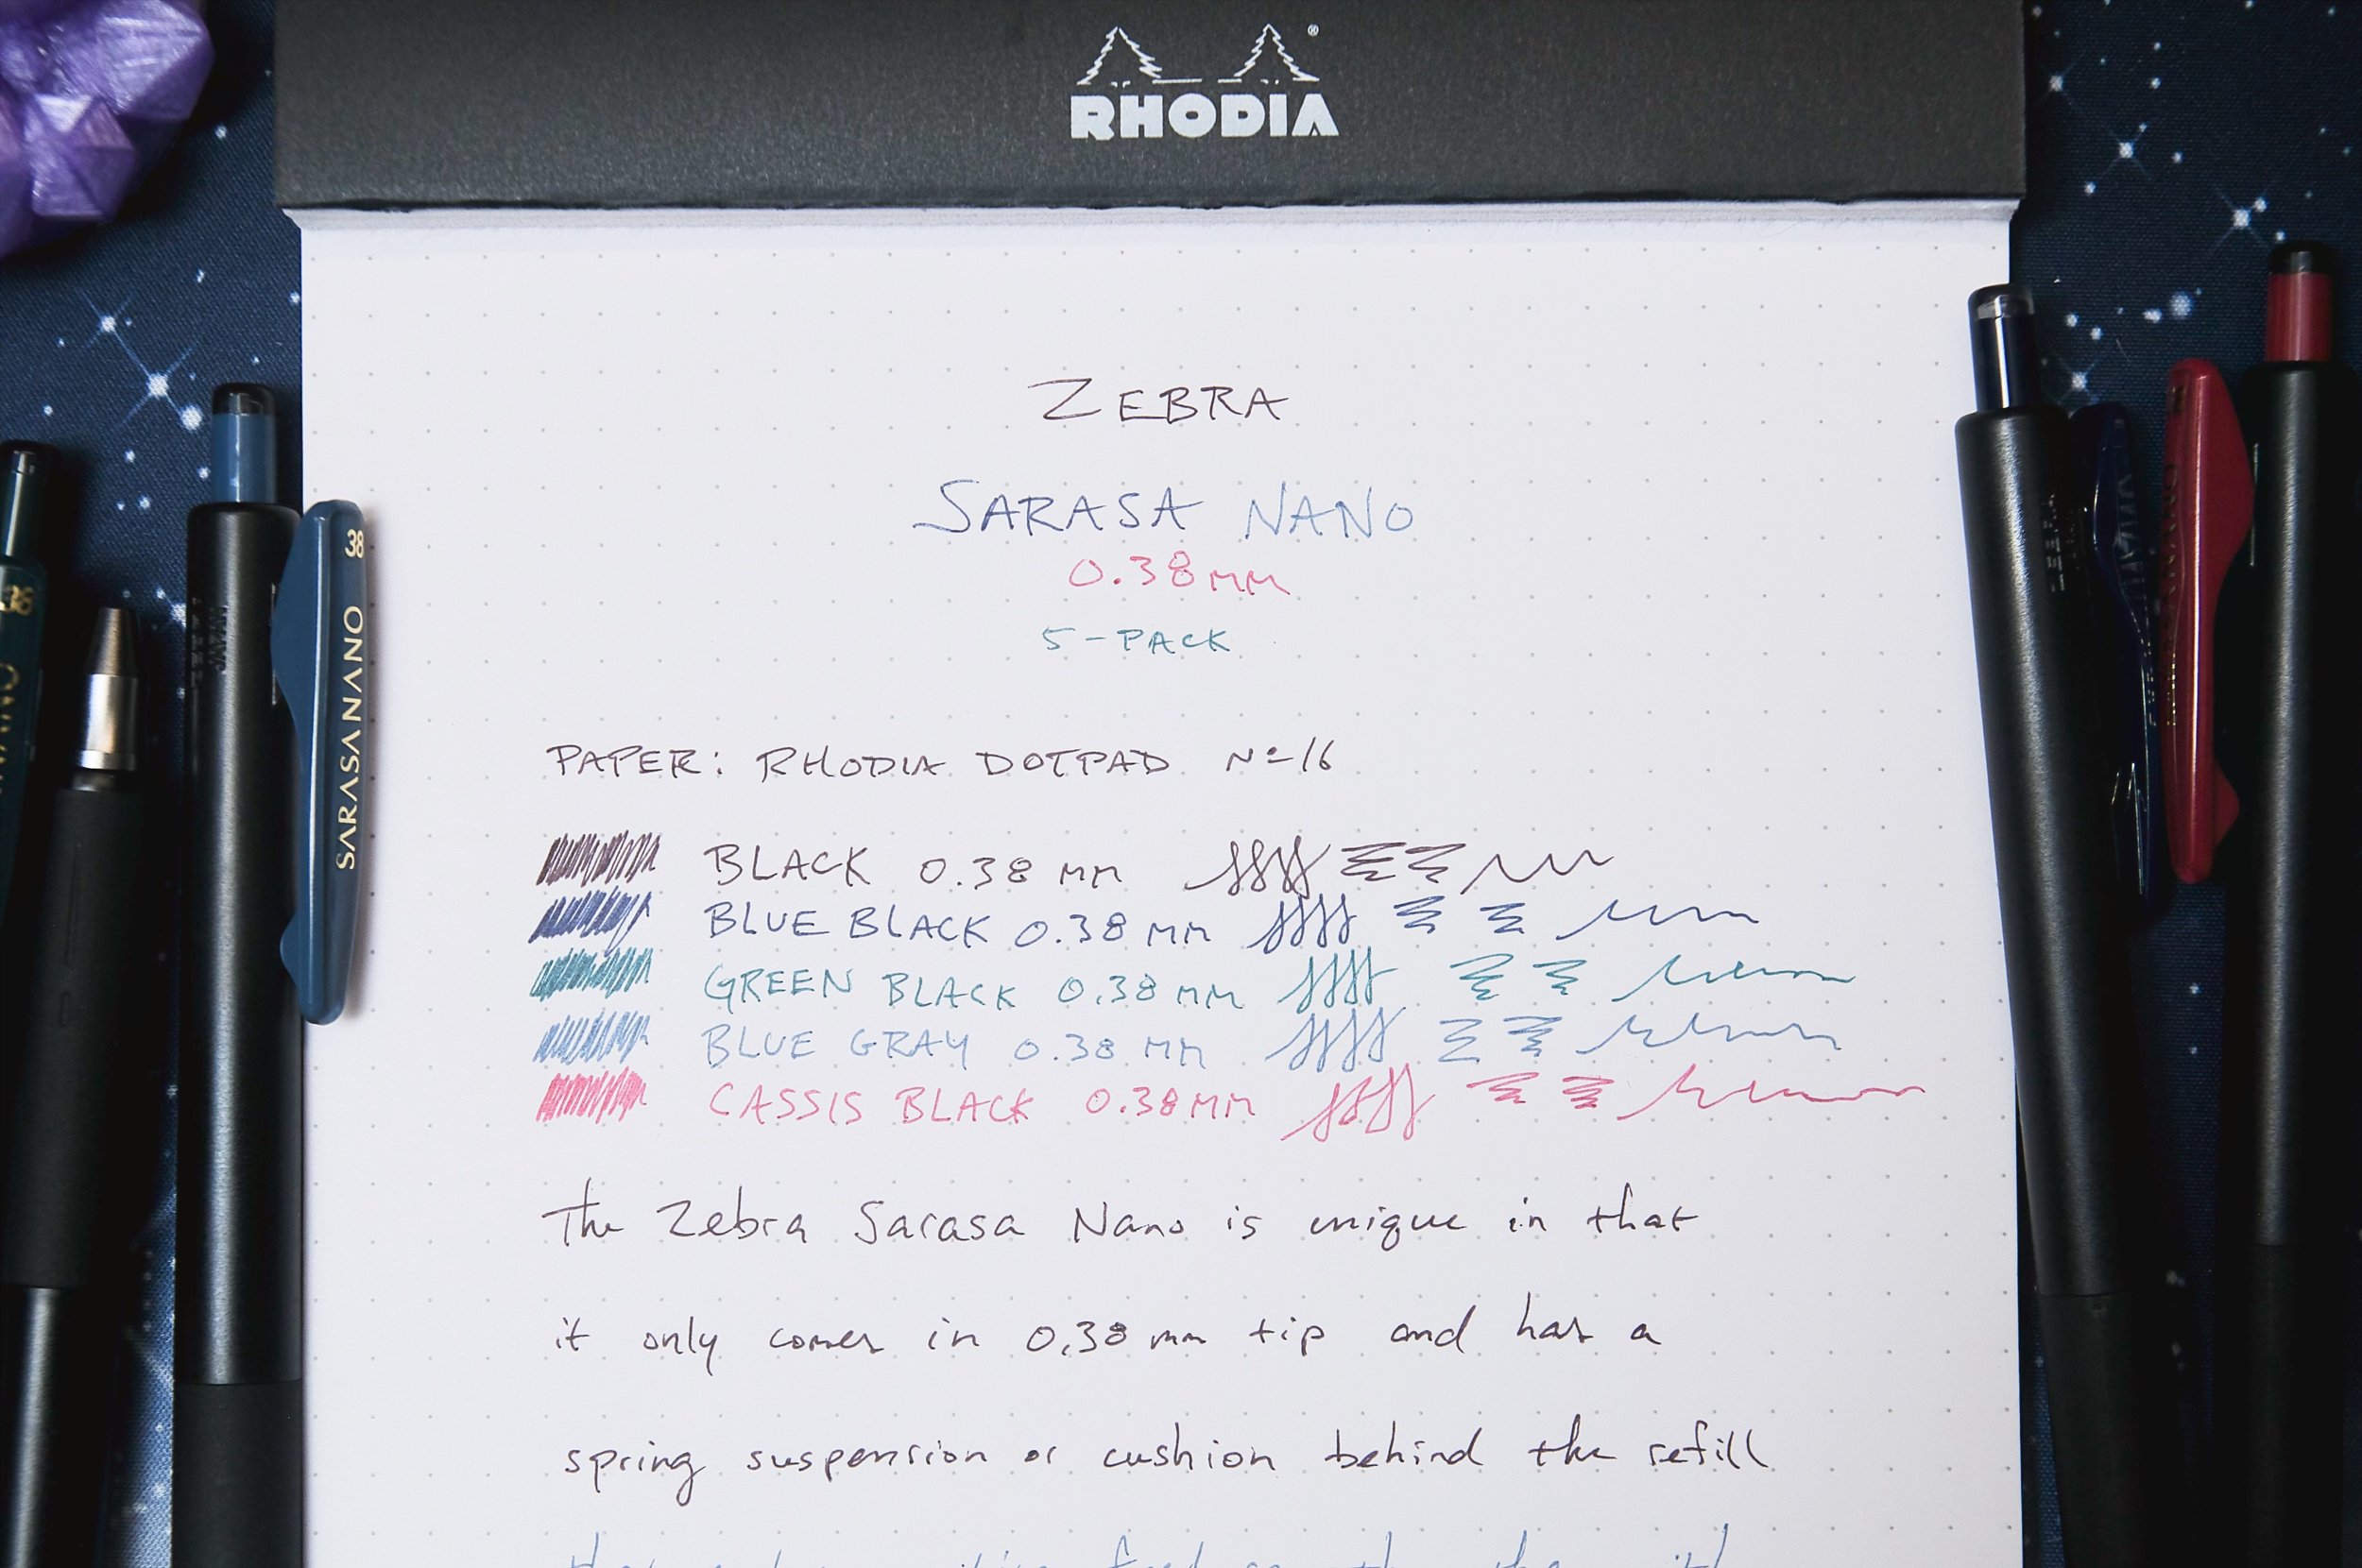 RHODIA®
ZEBRA
SARASA NANO
0.38 MM
5-PACK
PAPER: RHODIA DOTPAD Nº16
BLACK 0.38 MM
BLUE BLACK 0.38 MM
GREEN BLACK 0.38 MM
BLUE GRAY 0.38 MM
CASSIS BLACK 0.38MM
The Zebra Sarasa Nano is unique in that
it only comes in 0.38 mm tip and has a
spring suspension or cushion behind the refill
38
NANO
SARASA NANO 38